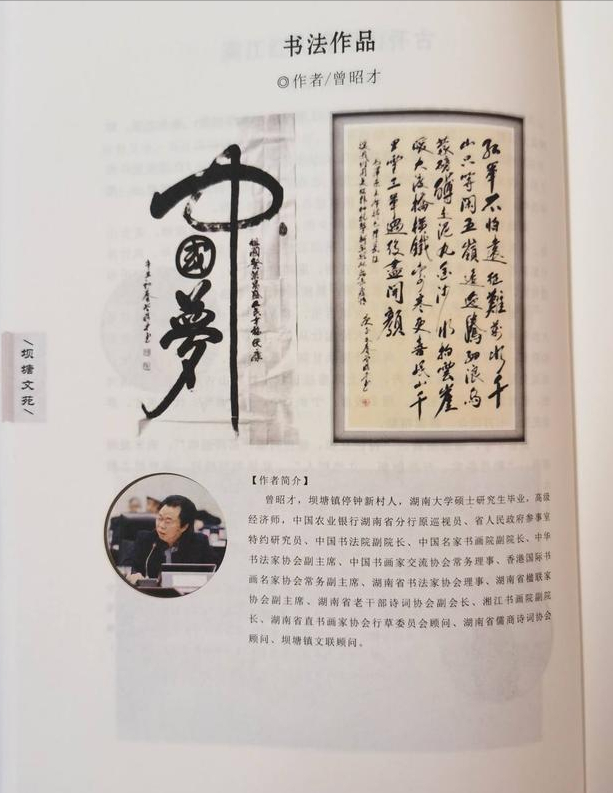 书法作品
◎作者/曾昭才
中國夢
红军不怕远征难万水千
山只等闲五嶺逶迤腾细浪乌
蒙磅礴走泥丸金沙水拍雲崖
暖大渡桥横铁索寒更喜岷山千
里雪三军过后尽开颜
\坝塘文苑\
【作者简介】
曾昭才，坝塘镇停钟新村人，湖南大学硕士研究生毕业，高级
经济师，中国农业银行湖南省分行原巡视员、省人民政府参事室
特约研究员、中国书法院副院长、中国名家书画院副院长、中华
书法家协会副主席、中国书画家交流协会常务理事、香港国际书
画名家协会常务副主席、湖南省书法家协会理事、湖南省楹联家
协会副主席、湖南省老干部诗词协会副会长、湘江书画院副院
长、湖南省直书画家协会行草委员会顾问、湖南省儒商诗词协会
顾问、坝塘镇文联顾问。